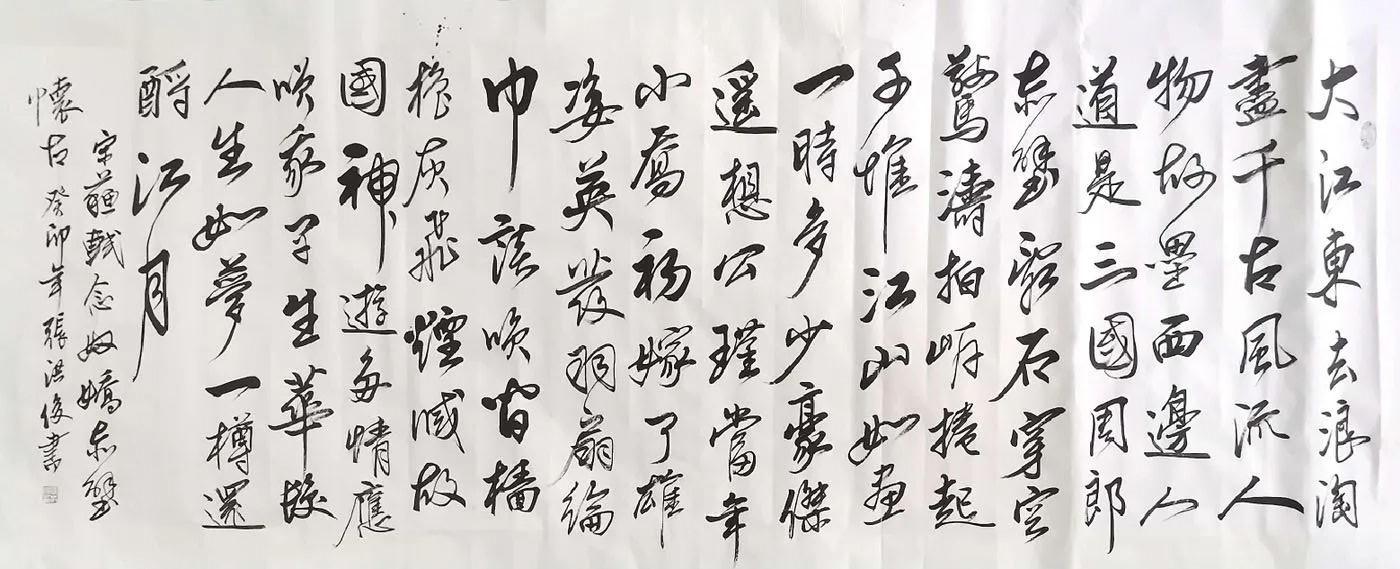 大江東去浪淘
盡千古風流人
物故壘西邊人
道是三國周郎
赤壁亂石穿空
驚濤拍岸捲起
千堆江山如畫
一時多少豪傑
遙想公瑾當年
小喬初嫁了雄
姿英發羽扇綸
巾談咲間檣
櫓灰飛煙滅故
國神遊多情應
咲我早生華髮
人生如夢一樽還
酹江月
宋蘇軾念奴嬌赤壁
懷古 癸卯年 張洪俊書